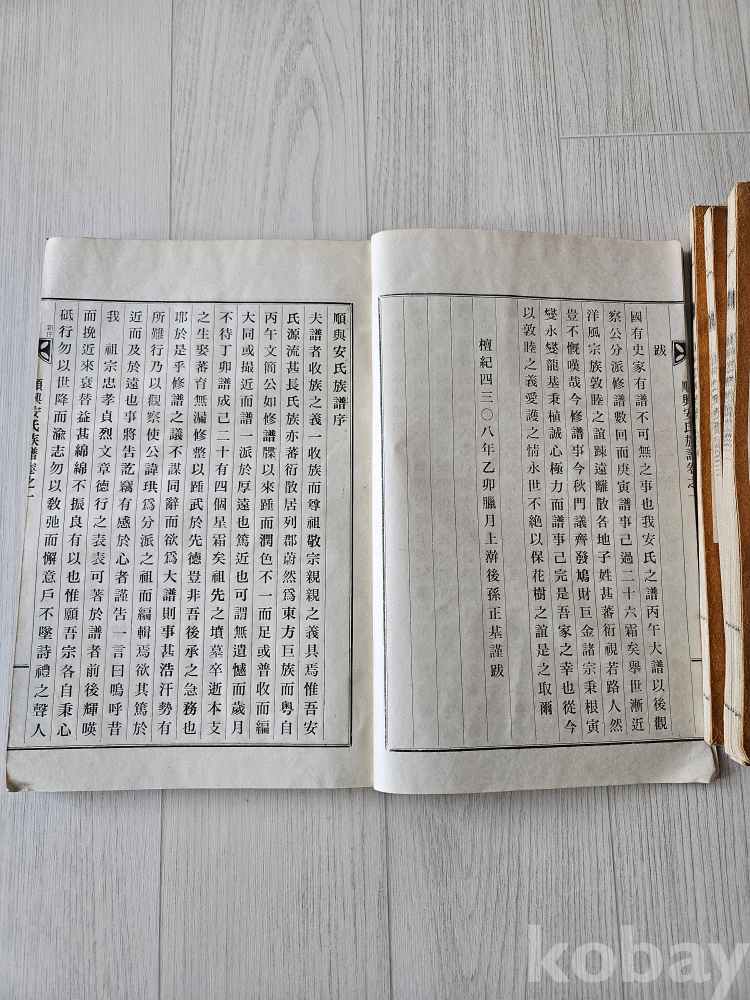 跋
國有史家有譜不可無之事也我安氏之譜丙午大譜以後觀
察公分派修譜數回而庚寅譜事己過二十六霜矣擧世漸近
洋風宗族敦睦之誼踈遠離散各地子姓甚蕃衍視若路人然
豈不慨嘆哉今修譜事今秋門議齊發鳩財巨金諸宗秉根寅
燮永燮龍基秉植誠心極力而譜事己完是吾家之幸也從今
以敦睦之義愛護之情永世不絶以保花樹之誼是之取爾
檀紀四三〇八年乙卯臘月上澣後孫正基謹跋
順興安氏族譜卷之一
順興安氏族譜序
夫譜者收族之義一收族而尊祖敬宗親親之義具焉惟吾安
氏源流甚長氏族亦蕃衍散居列郡蔚然爲東方巨族而粤自
丙午文簡公如修譜牒以來踵而潤色不一而足或普收而編
大同或撮近而譜一派於厚遠也篤近也可謂無遺憾而歲月
不待丁卯譜成己二十有四個星霜矣祖先之墳墓卒逝本支
之生娶蕃育無漏修整以踵武於先德豈非吾後承之急務也
耶於是乎修譜之議不謀同辭而欲爲大譜則事甚浩汗勢有
所難行乃以觀察使公諱珙爲分派之祖而編輯焉欲其篤於
近而及於遠也事將告訖竊有感於心者謹告一言曰嗚呼昔
我 祖宗忠孝貞烈文章德行之表表可著於譜者前後輝暎
而挽近來衰替益甚綿綿不振良有以也惟願吾宗各自秉心
砥行勿以世降而渝志勿以敎弛而懈意戶不墜詩禮之聲人
新序
順興安氏族譜卷之一
kobay